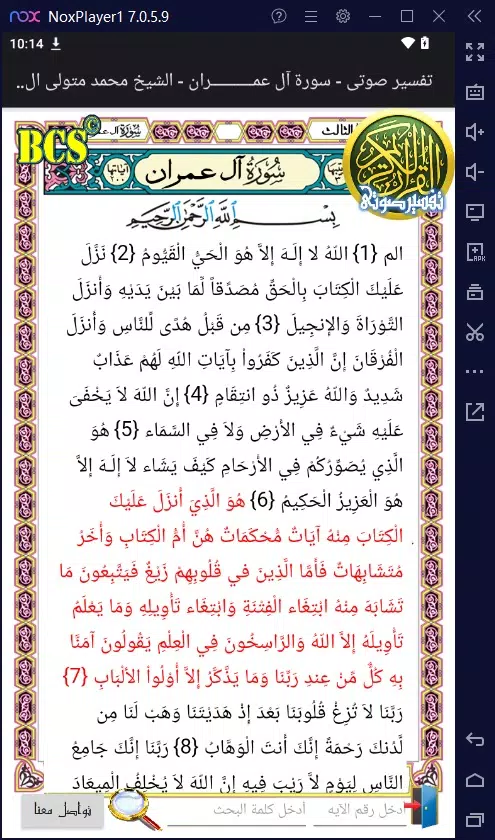 NoxPlayer1 7.0.5.9
10:14
تفسير صوتى - سورة آل عمـــــــــران - الشيخ محمد متولى ال..
BCS©
سورة آل عمران
الثالث
آياتها
٢٠٠
سُورَةُ آل عمران
القرآن الكريم
تفسير صوتى
بِسْمِ اللَّهِ الرَّحْمَنِ الرَّحِيمِ
الم {1} اللّهُ لا إِلَـهَ إِلاَّ هُوَ الْحَيُّ الْقَيُّومُ {2} نَزَّلَ
عَلَيْكَ الْكِتَابَ بِالْحَقِّ مُصَدِّقاً لِّمَا بَيْنَ يَدَيْهِ وَأَنزَلَ
التَّوْرَاةَ وَالإِنجِيلَ {3} مِن قَبْلُ هُدًى لِّلنَّاسِ وَأَنزَلَ
الْفُرْقَانَ إِنَّ الَّذِينَ كَفَرُواْ بِآيَاتِ اللّهِ لَهُمْ عَذَابٌ
شَدِيدٌ وَاللّهُ عَزِيزٌ ذُو انتِقَامٍ {4} إِنَّ اللّهَ لاَ يَخْفَىَ
عَلَيْهِ شَيْءٌ فِي الأَرْضِ وَلاَ فِي السَّمَاء {5} هُوَ
الَّذِي يُصَوِّرُكُمْ فِي الأَرْحَامِ كَيْفَ يَشَاء لاَ إِلَـهَ إِلاَّ
هُوَ الْعَزِيزُ الْحَكِيمُ {6} هُوَ الَّذِيَ أَنزَلَ عَلَيْكَ
الْكِتَابَ مِنْهُ آيَاتٌ مُّحْكَمَاتٌ هُنَّ أُمُّ الْكِتَابِ وَأُخَرُ
مُتَشَابِهَاتٌ فَأَمَّا الَّذِينَ في قُلُوبِهِمْ زَيْغٌ فَيَتَّبِعُونَ مَا
تَشَابَهَ مِنْهُ ابْتِغَاء الْفِتْنَةِ وَابْتِغَاء تَأْوِيلِهِ وَمَا يَعْلَمُ
تَأْوِيلَهُ إِلاَّ اللّهُ وَالرَّاسِخُونَ فِي الْعِلْمِ يَقُولُونَ آمَنَّا
بِهِ كُلٌّ مِّنْ عِندِ رَبِّنَا وَمَا يَذَّكَّرُ إِلاَّ أُوْلُواْ الألْبَابِ {7}
رَبَّنَا لاَ تُزِغْ قُلُوبَنَا بَعْدَ إِذْ هَدَيْتَنَا وَهَبْ لَنَا مِن
لَّدُنكَ رَحْمَةً إِنَّكَ أَنتَ الْوَهَّابُ {8} رَبَّنَا إِنَّكَ جَامِعُ
النَّاسِ لِيَوْمٍ لاَّ رَيْبَ فِيهِ إِنَّ اللّهَ لاَ يُخْلِفُ الْمِيعَادَ
أدخل رقم الآيه
أدخل كلمة البحث
تواصل معنا
APK